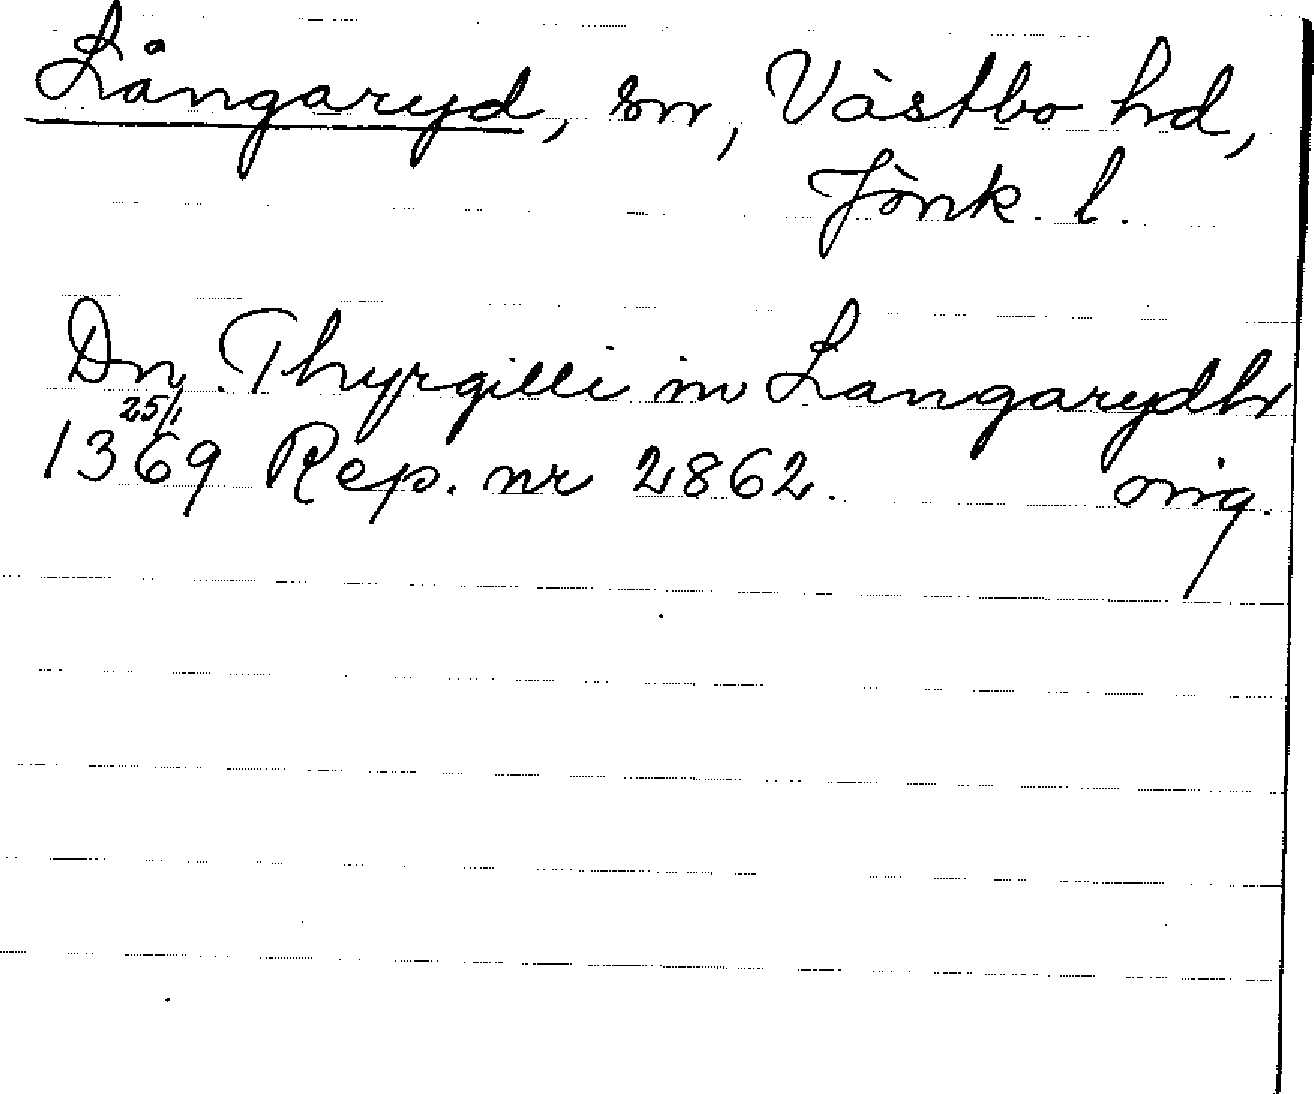 Långaryd, sn, Västbo hd,
Jönk. l.
Dn Thyrgilli in Langarydh
25/1
1369 Rep. nr 2862. orig.